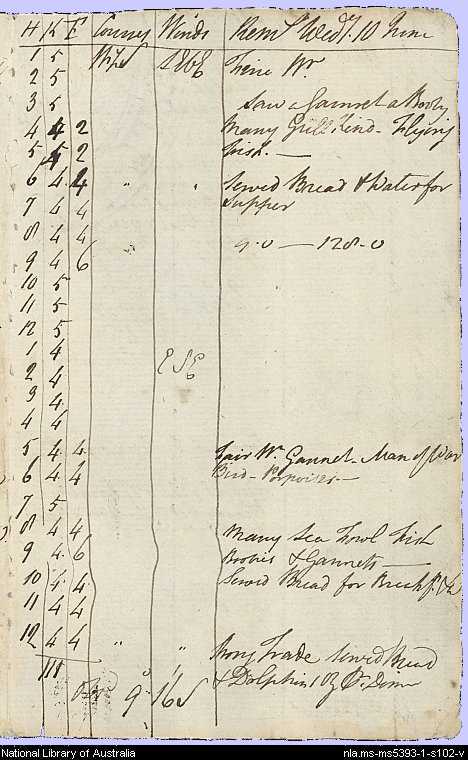 H K F Courses Winds Rem.s Wed.y 10 June
1 5 WbS EbS Fine Wr.
2 5
3 5 Saw a Gannet a Booby
4 4 2 Many Gull kind - Flying
5 4 2 Fish.—
6 4 4 " " Served Bread & Water for
7 4 4 Supper
8 4 4 — 128-0
9 4 6
10 5
11 5
12 5
1 4
2 4 ESE
3 4
4 4
5 4 4 Fair Wr. Gannet - Man of War
6 4 4 Bird - Porpoises.—
7 5
8 4 4 Many Sea Fowl Fish
9 4 6 Boobies & Gannets —
10 4 4 Served Bread for Breakf.t &c
11 4 4
12 4 4 " " Strong Trade served Bread
111 & Dolphin 1 Oz
9 16 S
National Library of Australia nla.ms-ms5393-1-s102-v